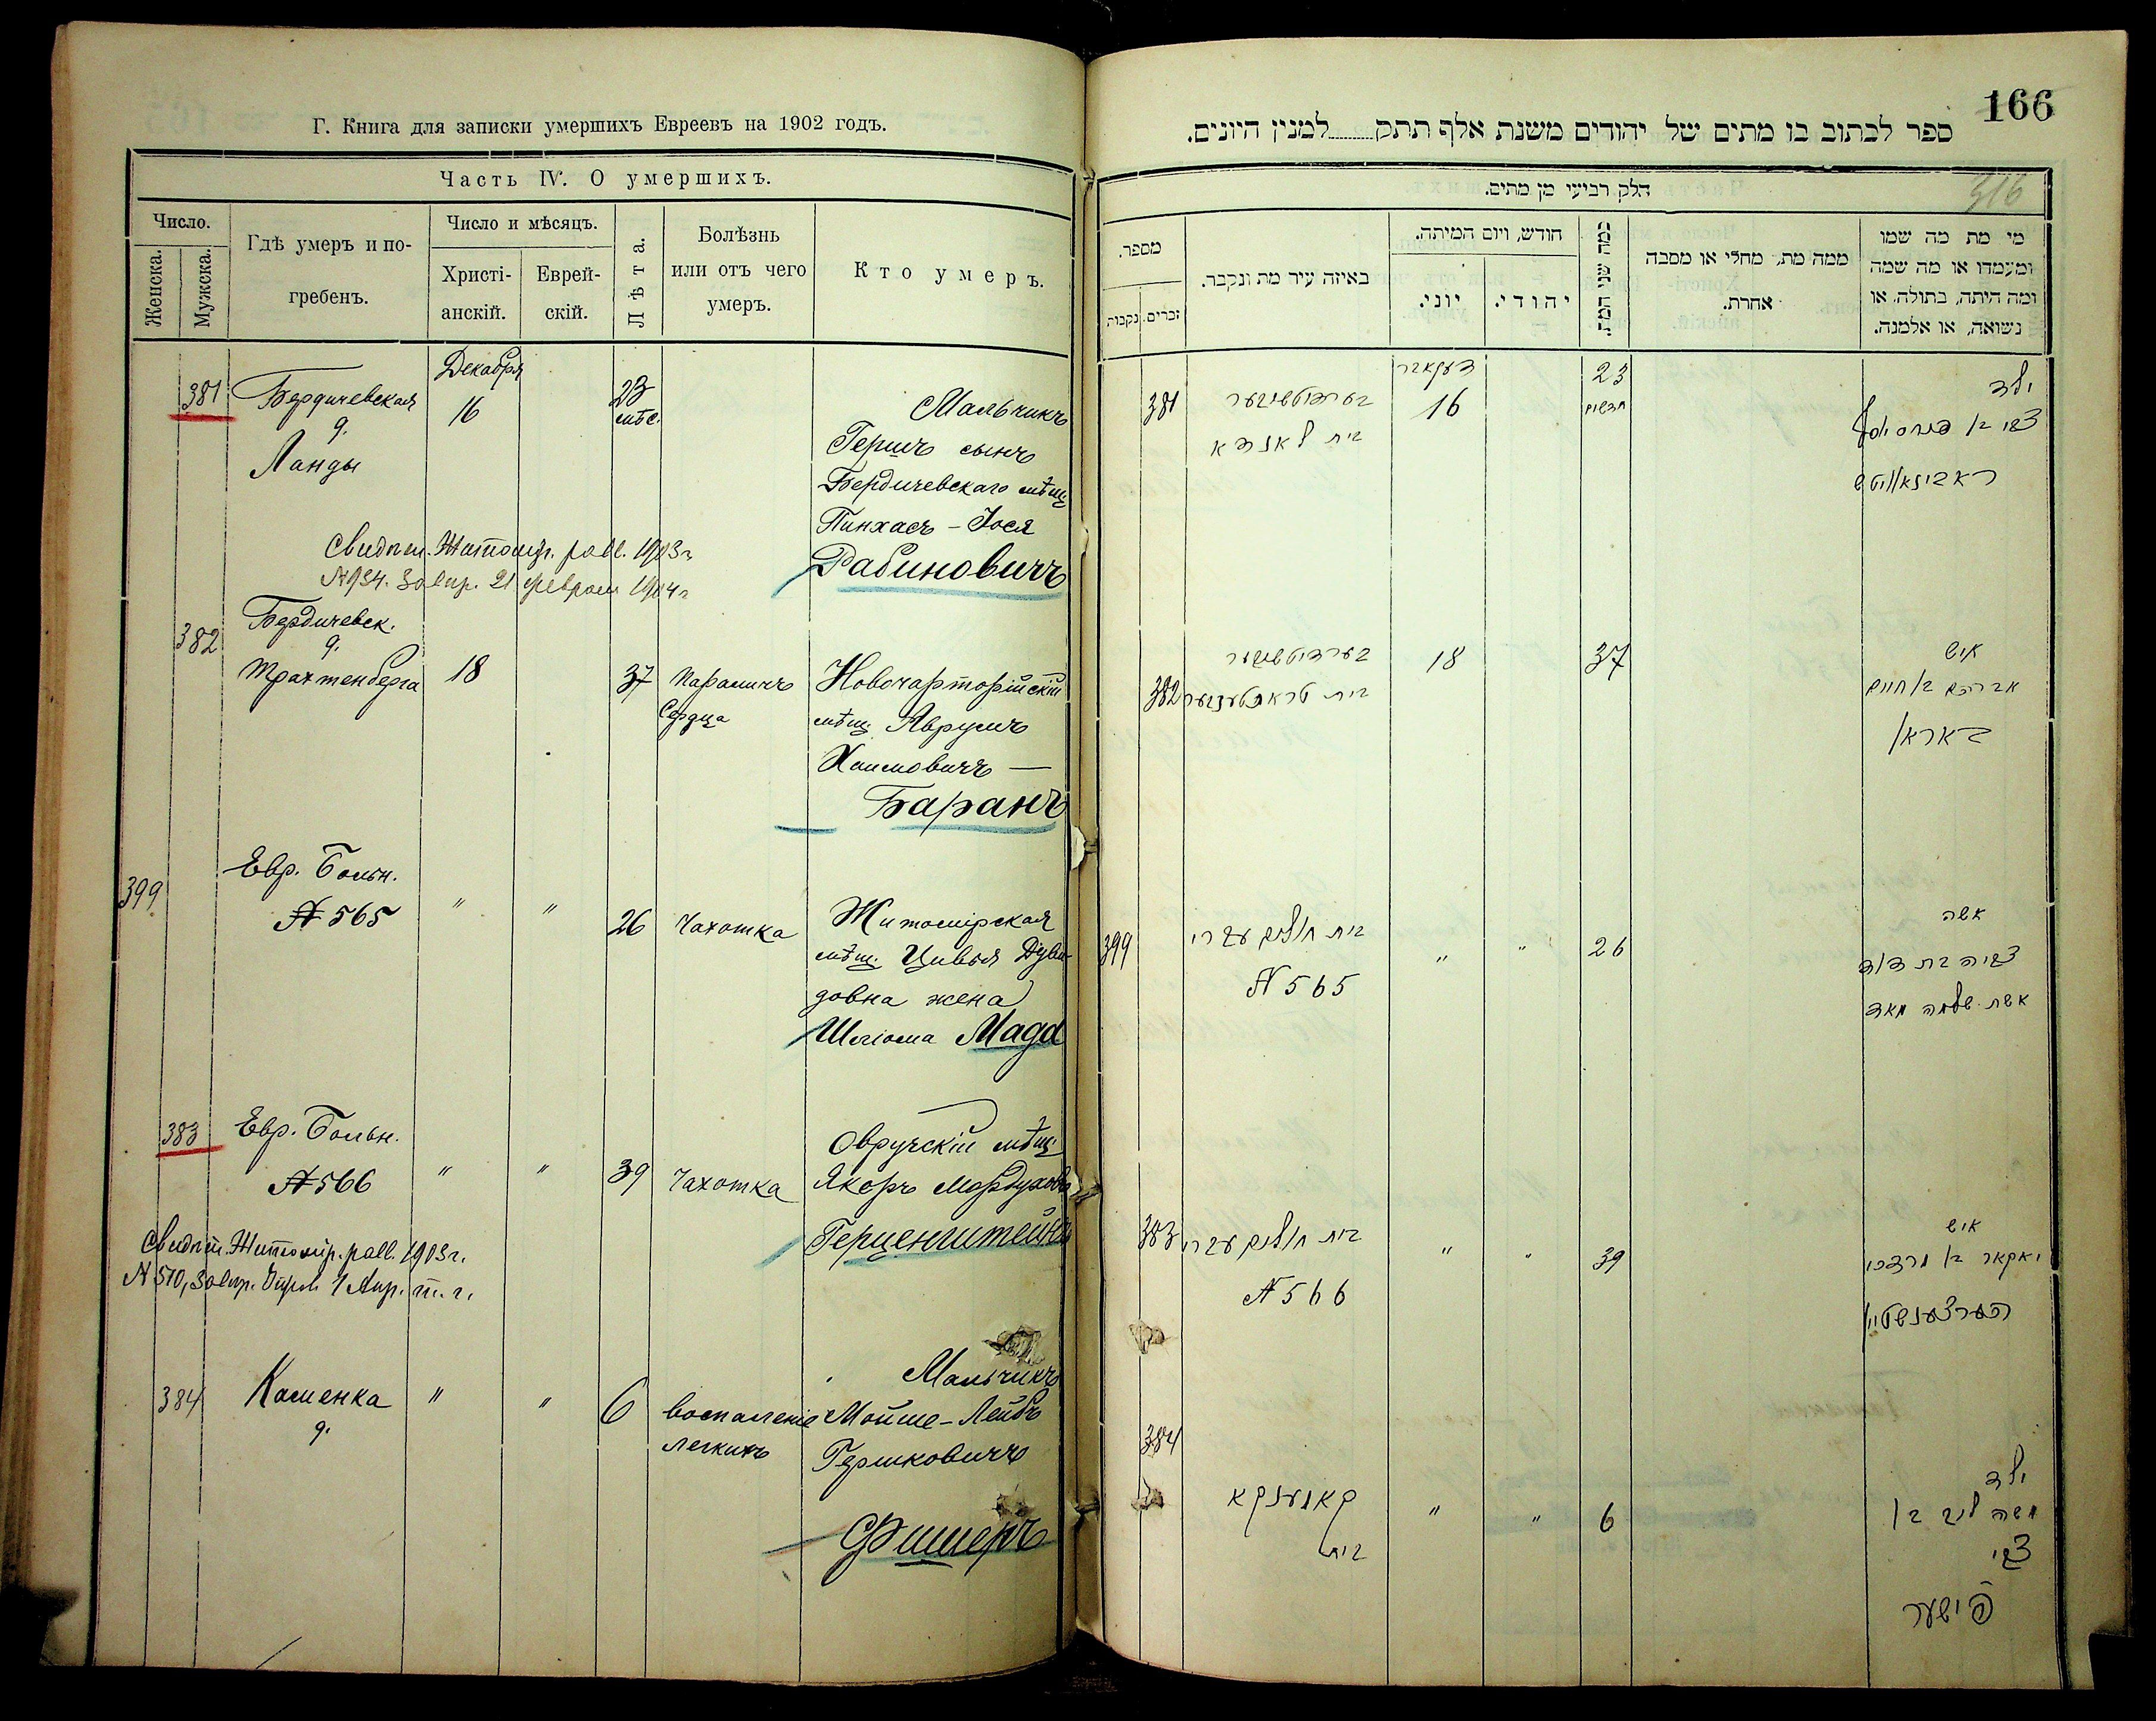 Г. Книга для записки умершихъ Евреевъ на 1902 годъ.
Часть IV. О умершихъ.
Число.
Женска.
Мужска.
Гдѣ умеръ и по-
гребенъ.
Число и мѣсяцъ.
Христі-
анскій.
Еврей-
скій.
Лѣта.
Болѣзнь
или отъ чего
умеръ.
Кто умеръ.
381
Бердичевская
д.
Ланды
Декабря
16
23
мѣс.
Мальчикъ
Гершъ сынъ
Бердичевскаго мѣщ.
Пинхасъ-Іося
Рабиновичъ
Свидѣт. Житомір. равв. 1903 г.
№ 934. 21 февраля 1904 г.
382
Бердичевск.
д.
Трахтенберга
18
37
Параличъ
Сердца
Новочарторійскій
мѣщ. Аврумъ
Хаимовичъ —
Баранъ
399
Евр. Больн.
№ 565
" "
26
Чахотка
Житомірская
мѣщ. Цивья Дуви-
довна жена
Шліома Мада
383
Евр. Больн.
№ 566
" "
39
Чахотка
Овручскій мѣщ.
Якоръ Мордухов.
Герценштейнъ
Свидѣт. Житомір. равв. 1903 г.
№ 510, 1 Апр. т. г.
384
Каменка
д.
" "
6
воспаленіе
легкихъ
Мальчикъ
Мойше-Лейбъ
Гершковичъ
Фишеръ
166
ספר לכתוב בו מתים של יהודים משנת אלף תתק למנין היונים.
חלק רביעי מן מתים.
316
מספר.
זכרים.
נקבות
באיזה עיר מת ונקבר.
חודש, ויום המיתה.
יוני.
יהודי.
כמה שני המת.
ממה מת, מחלי או מסבה
אחרת.
מי מת מה שמו
ומעמדו או מה שמה
ומה היתה, בתולה, או
נשואה, או אלמנה.
381
בערדיטשיווער
בית לאנדא
דעקאבר
16
23
חדשים
ילד
צבי בן פנחס יוסף
ראבינאוויטש
382
בערדיטשיווער
בית
18
37
איש
אברהם בן חיים
באראן
399
בית חולים עברי
N 565
" "
26
אשה
צביה בת דוד
אשת שלמה מאד
383
בית חולים עברי
N 566
" "
39
איש
יאקאר בן מרדכי
הערצענשטיין
384
קאמענקא
בית
" "
6
ילד
משה ליב בן
צבי
פישער